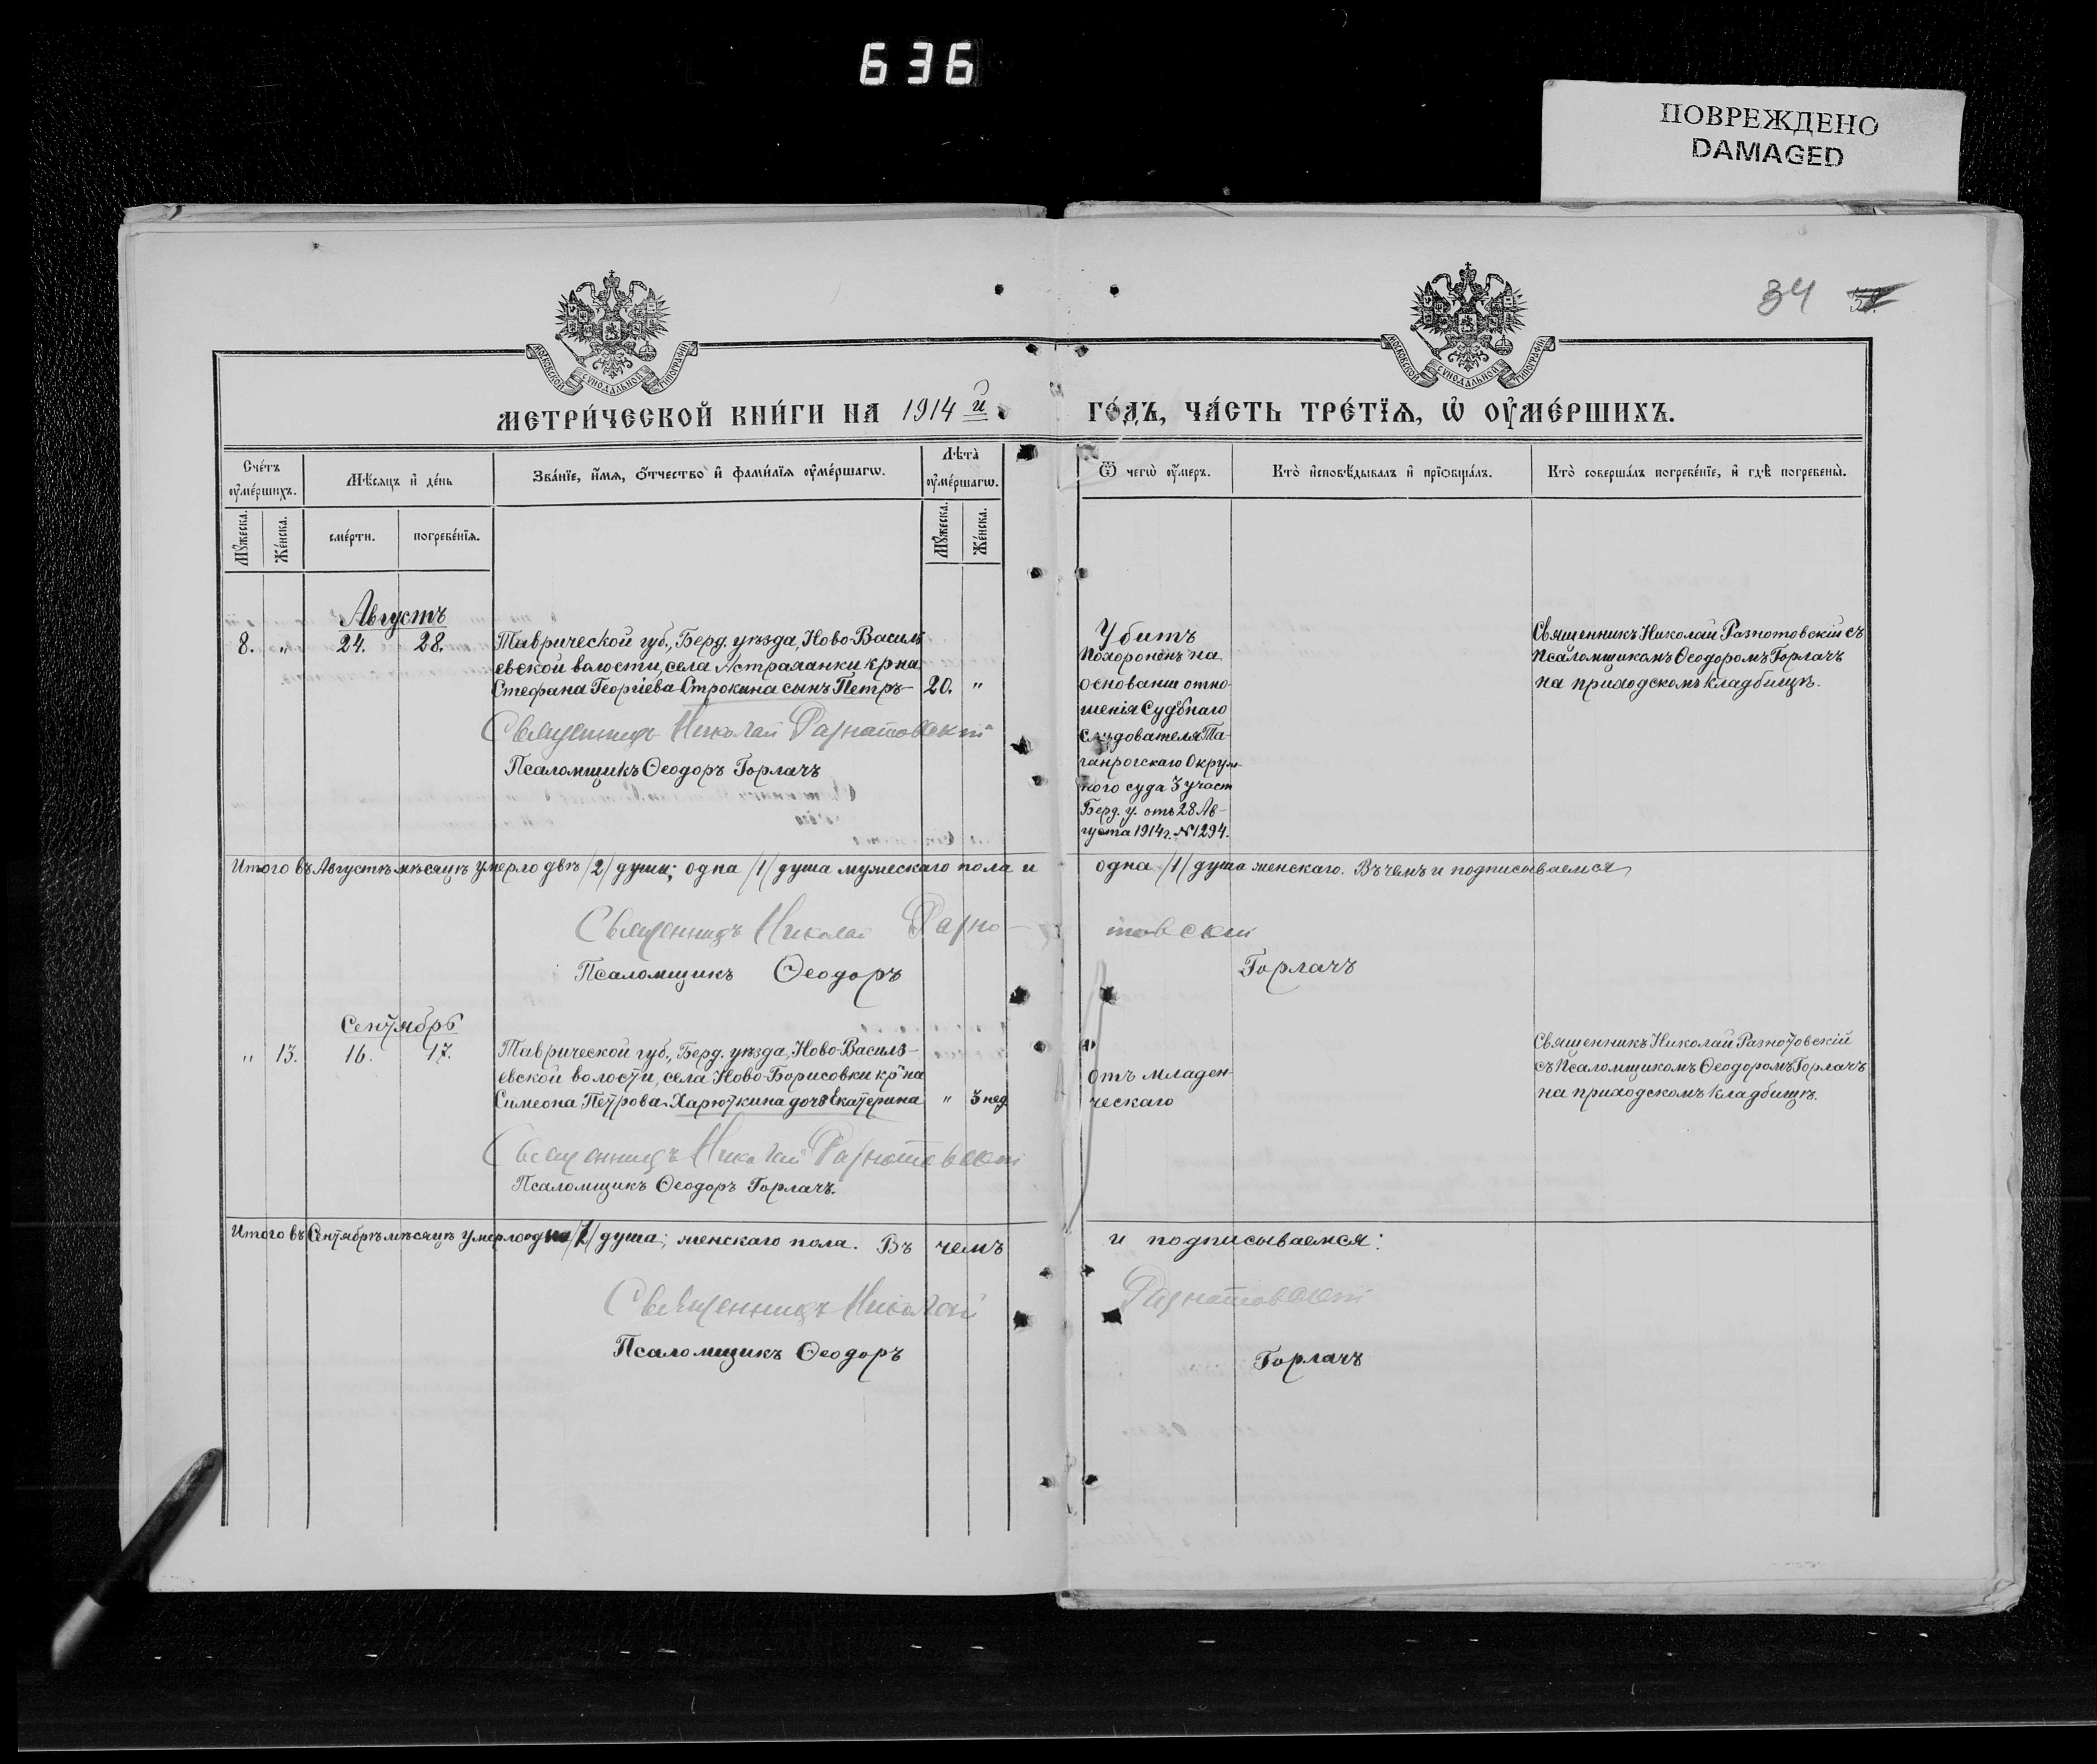 636
ПОВРЕЖДЕНО
DAMAGED
34
МОСКОВСКОЙ СѴНОДАЛЬНОЙ ТИПОГРАФІИ
МОСКОВСКОЙ СѴНОДАЛЬНОЙ ТИПОГРАФІИ
МЕТРИ́ЧЕСКОЙ КНИ́ГИ НА 1914 й
ГО́ДЪ, ЧА́СТЬ ТРЕ́ТЇѦ, Ѡ҆ ОУ҆МЕ́РШИХЪ.
Сче́тъ оу҆ме́ршихъ.
Мѣ́сѧцъ и҆ де́нь
Зва́нїе, и҆́мѧ, ѻ҆́тчество и҆ фами́лїѧ оу҆ме́ршагѡ.
Лѣ́та оу҆ме́ршагѡ.
Ѿ чегѡ̀ оу҆́меръ.
Кто̀ и҆сповѣ́дывалъ и҆ прїѡбща́лъ.
Кто̀ соверша́лъ погребе́нїе, и҆ гдѣ̀ погребены̀.
Мꙋ́жеска.
Же́нска.
сме́рти.
погребе́нїѧ.
Мꙋ́жеска.
Же́нска.
Августъ
8. " 24. 28.
Таврической губ., Берд. уѣзда, Ново-Василь
евской волости, села Астраханки кр-на
Стефана Георгіева Строкина сынъ Петръ- 20. "
Священникъ Николай Разнатовскій
Псаломщикъ Ѳеодоръ Горлачъ
Убитъ
Похороненъ на
основаніи отно-
шенія Судебнаго
Слѣдователя Та-
ганрогскаго Окруж-
ного суда 3 участ
Берд. у. отъ 28 Ав-
густа 1914 г. № 1294.
Священникъ Николай Разнотовскій съ
Псаломщикомъ Ѳеодоромъ Горлачъ
на приходскомъ кладбищѣ.
Итого въ Августѣ мѣсяцѣ умерло двѣ /2/ души; одна /1/ душа мужескаго пола и одна /1/ душа женскаго. Въ чемъ и подписываемся
Священникъ Николай Разно-товскій
Псаломщикъ Ѳеодоръ Горлачъ
Сентябрь
" 13. 16. 17.
Таврической губ., Берд. уѣзда, Ново-Василь-
евской волости, села Ново-Борисовки кр-на
Симеона Петрова Харюткина дочь Екатерина " 3 нед
Священникъ Николай Разнотовскій
Псаломщикъ Ѳеодоръ Горлачъ.
Отъ младен-
ческаго
Священникъ Николай Разнотовскій
съ Псаломщикомъ Ѳеодоромъ Горлачъ
на приходскомъ кладбищѣ.
Итого въ Сентябрѣ мѣсяцѣ умерло одна /1/ душа; женскаго пола. Въ чемъ и подписываемся:
Священникъ Николай Разнатовскій
Псаломщикъ Ѳеодоръ Горлачъ